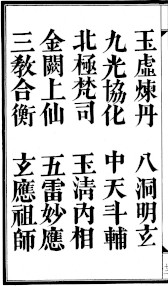 玉虛煉丹　八洞明玄
九光協化　中天斗輔
北極梵司　玉清內相
金闕上仙　五雷妙應
三教合衡　玄應祖師